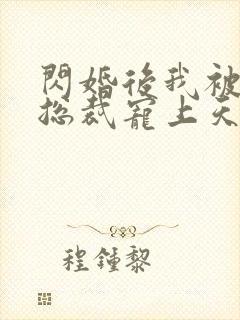 閃婚後我被
總裁寵上天
程鍾黎